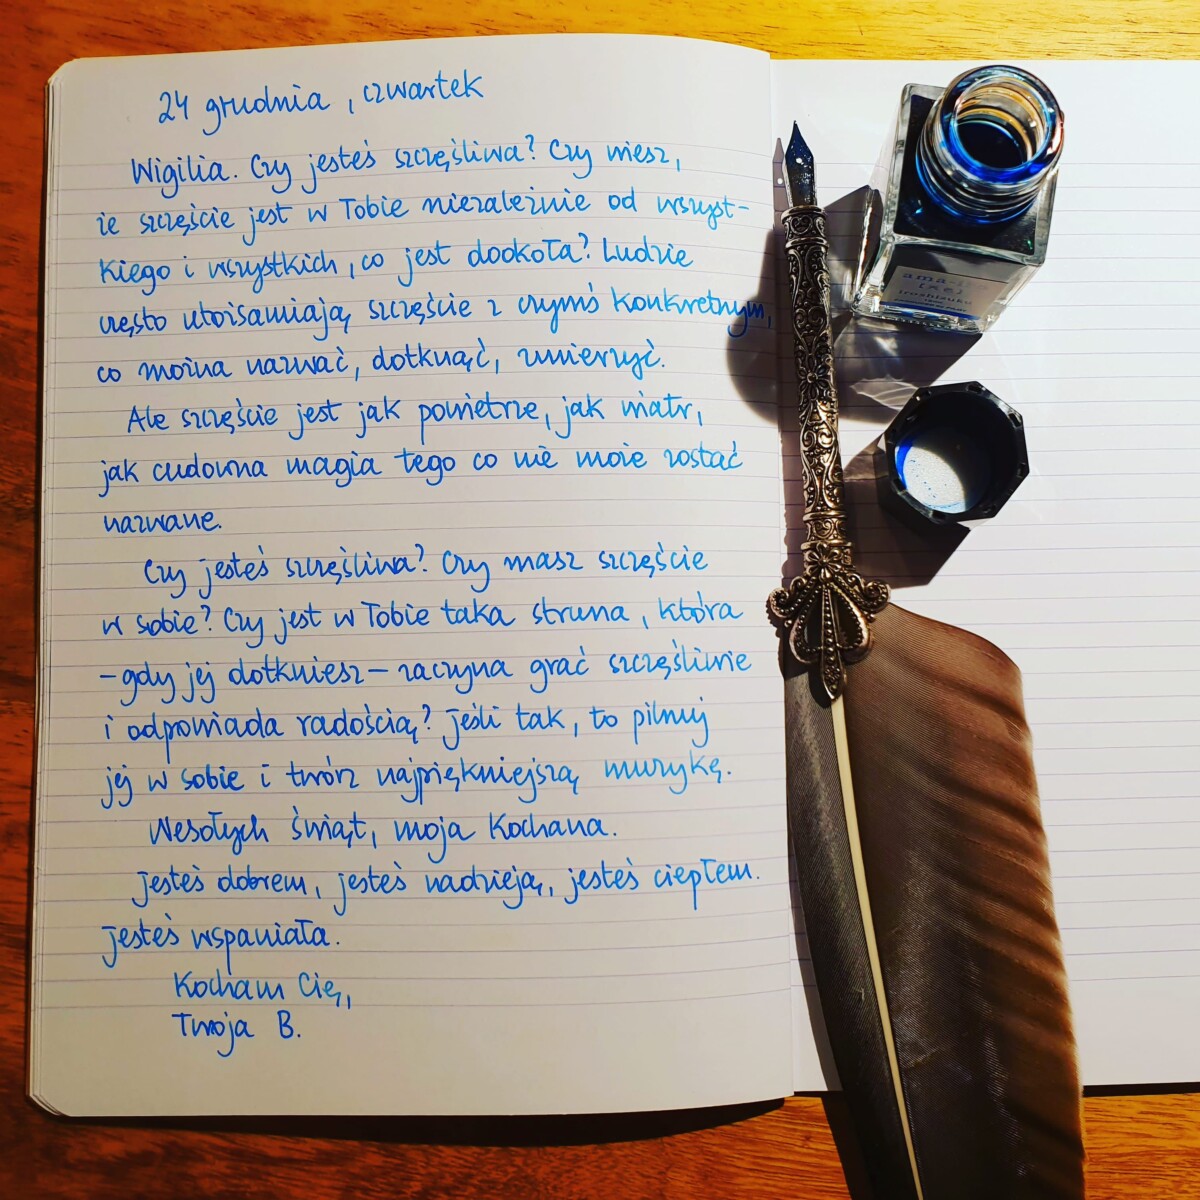 24 grudnia, czwartek
Wigilia. Czy jesteś szczęśliwa? Czy wiesz,
że szczęście jest w Tobie niezależnie od wszyst-
kiego i wszystkich, co jest dookoła? Ludzie
często utożsamiają szczęście z czymś konkretnym,
co można nazwać, dotknąć, zmierzyć.
Ale szczęście jest jak powietrze, jak wiatr,
jak cudowna magia tego co nie może zostać
nazwane.
Czy jesteś szczęśliwa? Czy masz szczęście
w sobie? Czy jest w Tobie taka struna, która
- gdy jej dotkniesz - zaczyna grać szczęśliwie
i odpowiada radością? Jeśli tak, to pilnuj
jej w sobie i twórz najpiękniejszą muzykę.
Wesołych świąt, moja Kochana.
Jesteś dobrem, jesteś nadzieją, jesteś ciepłem.
Jesteś wspaniała.
Kocham Cię,
Twoja B.
iroshizuku